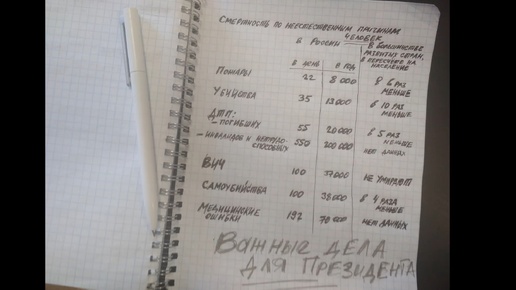 Смертность по неестественным причинам
в России
человек
в большинстве
развитых стран,
в пересчёте на
население
в день в год
Пожары 22 8 000 в 6 раз
меньше
Убийства 35 13 000 в 10 раз
меньше
ДТП:
– погибших 55 20 000 в 5 раз
меньше
– инвалидов и нетрудо-
способных 550 200 000 нет данных
ВИЧ 100 37 000 не умирают
Самоубийства 100 38 000 в 4 раза
меньше
Медицинские
ошибки 192 70 000 нет данных
Важные дела
для Президента